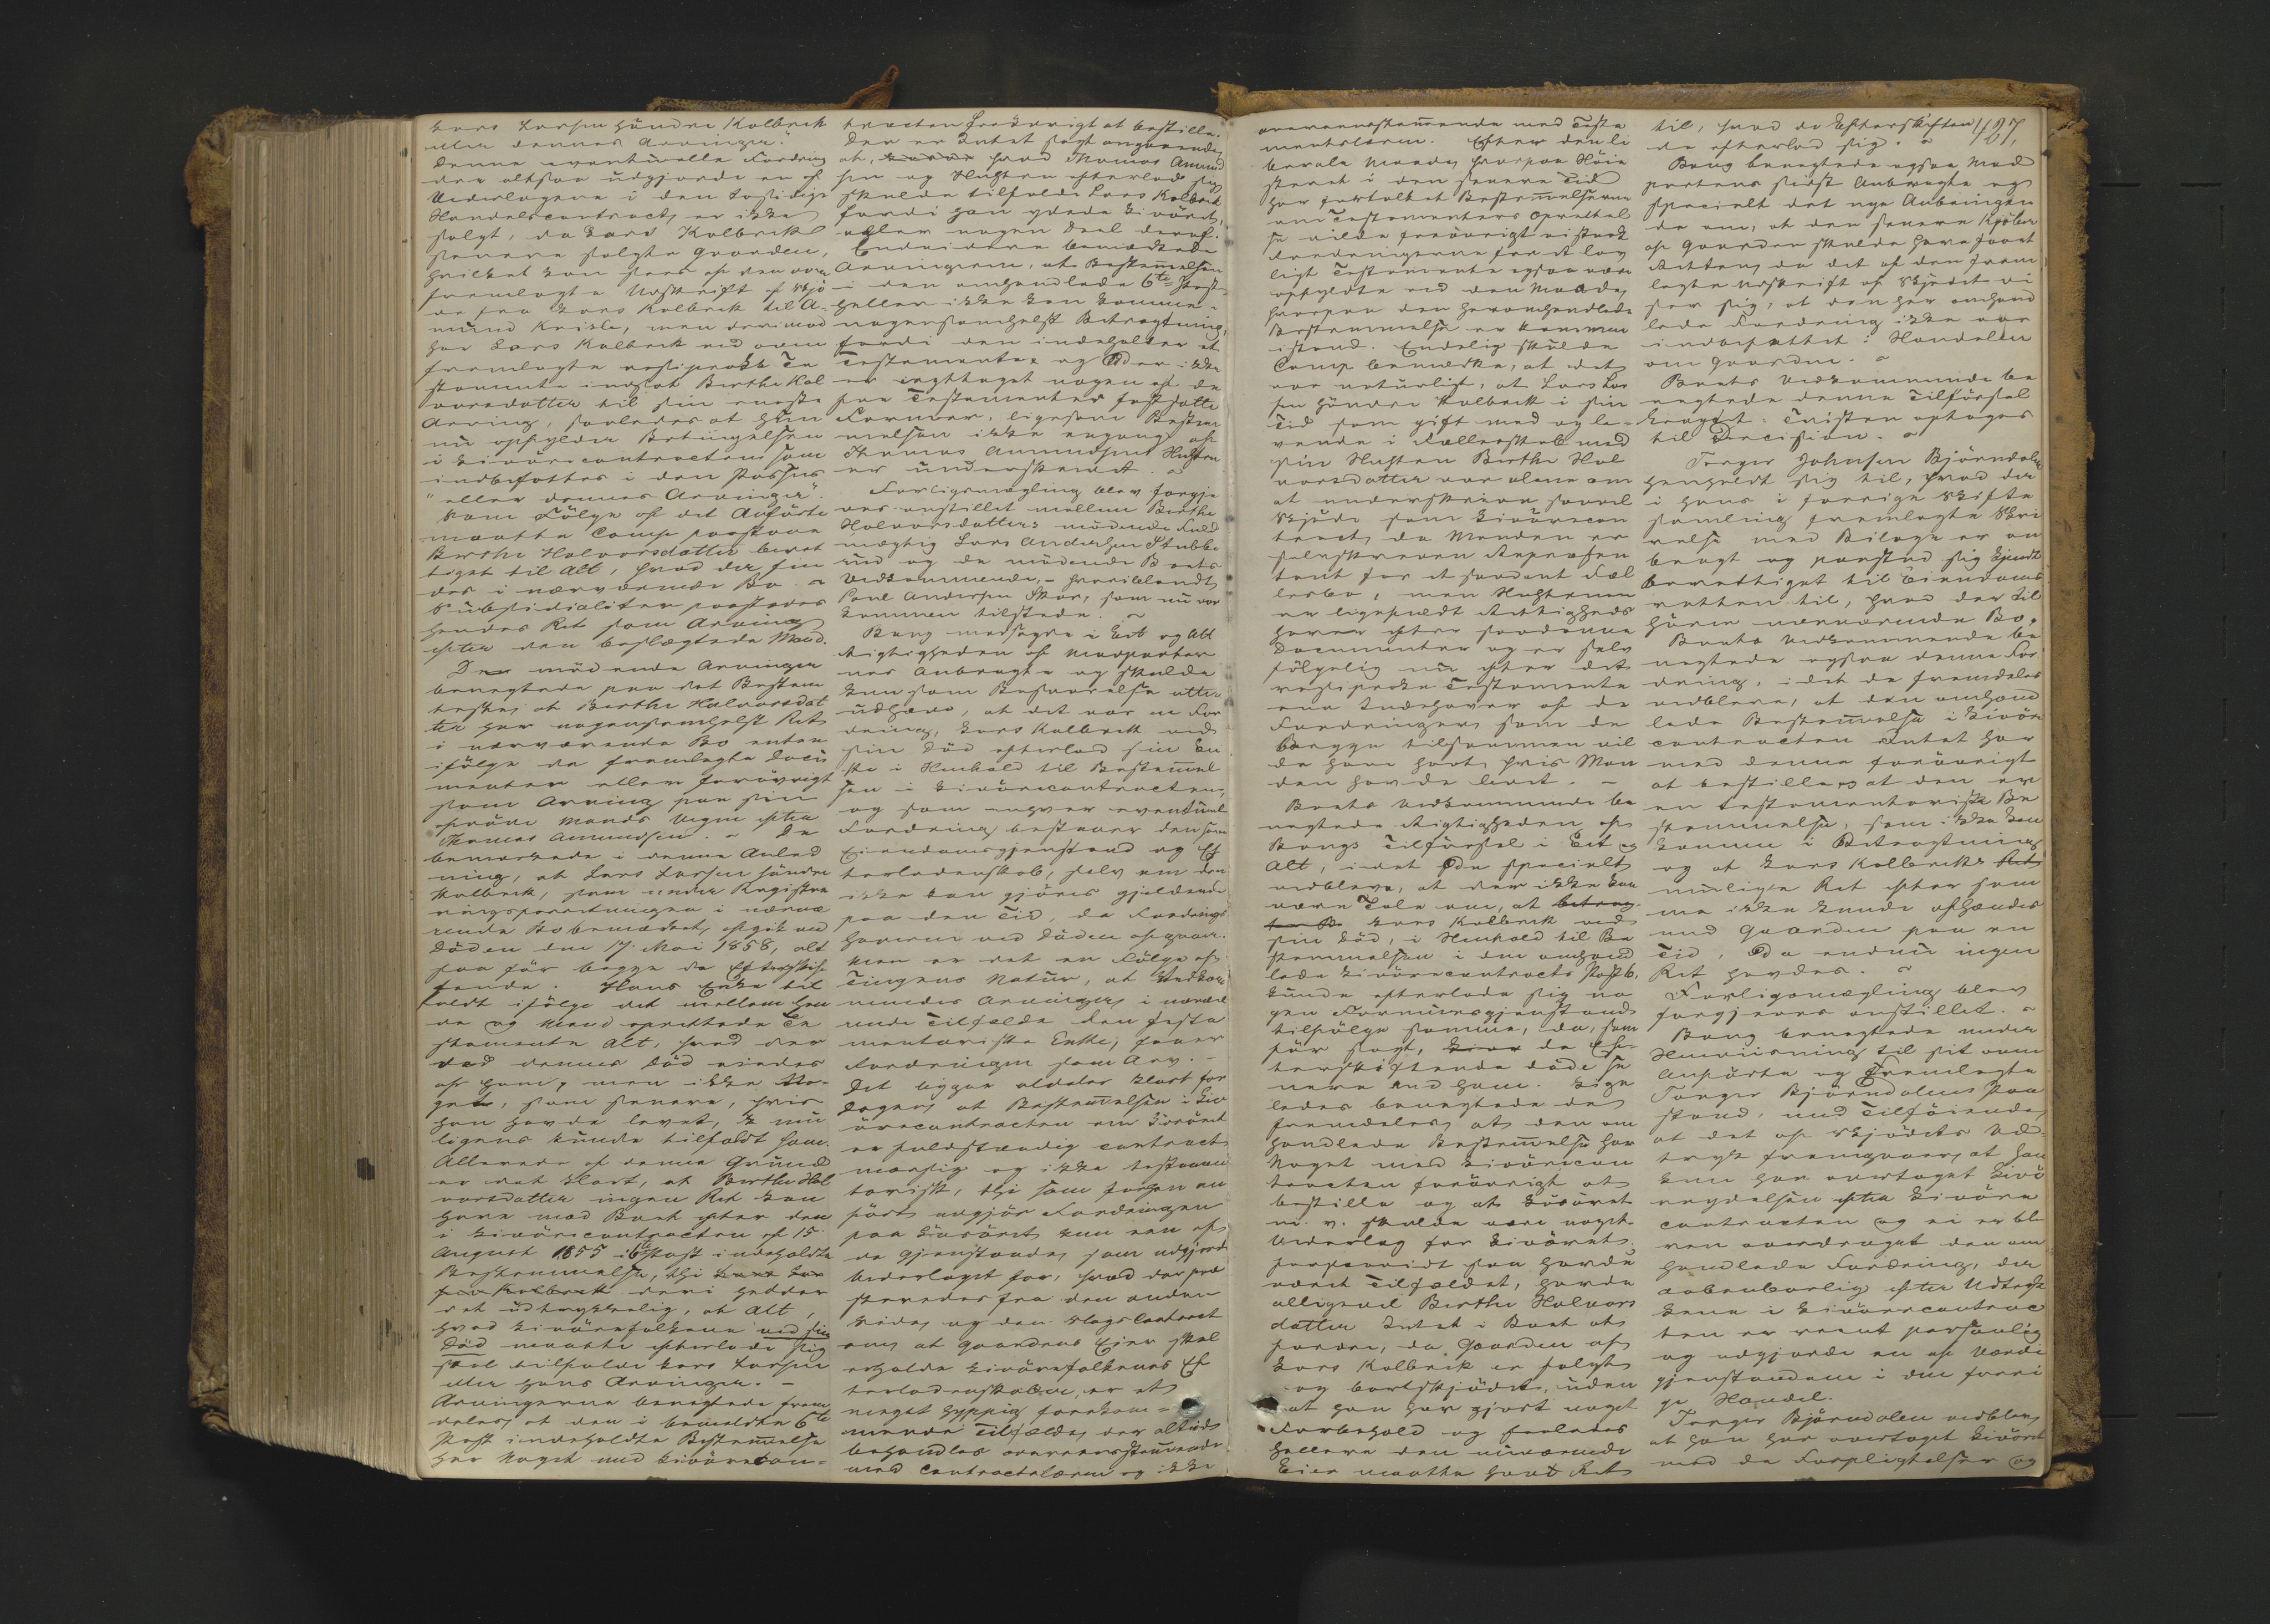 Lars Larsen Søndre Kolbræk
eller dennes Arvinger."
Denne eventuelle Fordring
der altsaa udgjorde en af
Vederlagene i den tosidige
Handelscontract, er ikke
solgt, da Lars Kolbræk
senere solgte Gaarden,
hvilket kan sees af den ovenn
fremlagte Udskrift af Skjö-
de fra Lars Kolbræk til A-
mund men derimod
har Lars Kolbræk ved ovenn
fremlagte resiprokt Te
stamente indsat Berthe Hal
vorsdatter til sin eneste
Arving, saaledes at hun
nu opfylder Betingelsen
i Livörecontracten som
indbefattes i den Passus
"eller dennes Arvinger".
Som Fölge af det Anförte
maatte Comp. paastaae
Berthe Halvorsdatter beret
tiget til Alt, hvad der fin
des i nærværende Bo.
Subsidialiter paastodes
hendes Ret som Arving
efter den beslægtede Mand.
De mödende Arvinger
benegtede paa det Bestem
teste, at Berthe Halvorsdat
ter har nogensomhelst Ret
i nærværende Bo enten
ifölge de fremlagte Docu
menter eller forövrigt
som Arving paa sin
afdöde Mands Vegne efter
Thomas Amundsen. De
bemærkede i denne Anled
ning, at Lars Larsen söndre
Kolbræk, som under Registre
ringsforretningen i nærvæ
rende Bo bemærket, afgik ved
Döden den 17 Mai 1858, alt
saa för begge de Efterskif
tende. Hans Enke til
faldt ifölge det mellem hen
de og Mand oprettede Te
stamente Alt, hvad der
ved dennes Död eiedes
af ham, men ikke No-
get, som senere, hvis
han havde levet, mu
ligens kunde tilfaldt ham.
Allerede af denne Grund
er det klart, at Berthe Hal
vorsdatter ingen Ret kan
have mod Boet efter den
i Livörecontracten af 15
August 1855 i 6te Post indeholdte
Bestemmelse, thi
deri hedder
det udtrykkelig, at Alt,
hvad Livörefolkene ved sin
Död maatte efterlade sig
skal tilfalde Lars Larsen
eller hans Arvinger. –
Arvingerne benegtede frem
deles, at den i bemeldte 6te
Post indeholdte Bestemmelse
har Noget med Livörecon=
tracten forövrigt at bestille.
Der er Intet sagt angaaende,
at, hvad Thomas Amund
sen og Hustru efterlod sig
skulde tilfalde Lars Kolbræk
fordi han ydede Livöret,
eller nogen Deel deraf.
Endvidere bemærkede
Arvingerne, at Bestemmelsen
i den omhandlede 6te Post
heller ikke kan komme i
nogensomhelst Betragtning,
fordi den indeholder et
Testamente, og der ikke
er iagttaget nogen af de
for Testamenter fastsatte
Former, ligesom Bestem
melsen ikke engang af
Thomas Amundsens Hustru
er underskrevet.
Forligsmægling blev forgje
ves anstillet mellem Berthe
Halvorsdatters mödende Fuld
mægtig Lars Andersen Stubbe
rud og de mödende Boets
Vedkommende, – hvoriblandt
Poul Andersen som nu var
kommen tilstede.
Bang modsagde i Eet og Alt
Rigtigheden af Modparter
nes Anbragte og skulde
kun som Besvarelse atter
udhæve, at det var en For
dring, Lars Kolbræk ved
sin Död efterlod sin En
ke i Henhold til Bestemmel
sen i Livörecontracten,
og som enhver eventuel
Fordring bestaaer den som
Eiendomsgjenstand og Ef
terladenskab, selv om den
ikke kan gjöres gjeldende
paa den Tid, da Fordrings
haveren ved Döden afgaaer.
Men er det en Fölge af
Tingens Natur, at Vedkom
mendes Arvinger, i nærvæ
rende Tilfælde den testa
mentariske Enke, faaer
Fordringen som Arv. –
Det ligger aldeles klart for
Dagen, at Bestemmelsen i Liv
örecontracten om Livöret
er fuldstændig contracts
mæssig og ikke testamen
tarisk, thi som forhen an
fört udgjör Fordringen
paa Livöret kun een af
de Gjenstande, som udgjorde
Vederlaget for, hvad der præ
steredes fra den anden
Side, og den Slags Contract
om, at Gaardens Eier skal
erholde Livörefolkenes Ef
terladenskaber, er et
meget hyppig forekom=
mende Tilfælde, der altid
behandles overensstemmende
med Contractslæren og ikke
overensstemmende med Testa
mentslæren. Efter den li
berale Maade, hvorpaa Höie
steret i den senere Tid
har fortolket Bestemmelserne
om Testamenters Oprettel
se vilde forövrigt vistnok
Fordringerne for et lov
ligt Testamente ogsaa være
opfyldte ved den Maade,
hvorpaa den heromhandlede
Bestemmelse er kommen
istand. Endelig skulde
Comp. bemærke, at det
var naturligt, at Lars Lar
sen Söndre Kolbræk i sin
Tid som gift med og le-
vende i Fælleskab med
sin Hustru Berthe Hal
vorsdatter var alene om
at underskrive saavel
Skjöde som Livörecon
tract, da Manden er
selvskreven Repræsen
tant for et saadant Fæl
lesbo, men Hustruen
er ligefuldt Rettigheds
haver efter saadanne
Documenter og er selv
fölgelig nu efter det
resiproke Testamente
ene Indehaver af de
Fordringer, som de
Begge tilsammen vil
de have havt, hvis Man
den havde levet. –
Boets Vedkommende be
negtede Rigtigheden af
Bangs Tilförsel i Eet og
Alt, idet De specielt
vedbleve, at der ikke kan
være Tale om, at
Lars Kolbræk ved
sin Död, i Henhold til Be
stemmelsen i den omhand
lede Livörecontracts Post 6,
kunde efterlade sig no
gen Formuesgjenstand
tilfölge samme, da, som
för sagt, de Ef-
terskiftende döde se
nere end ham. Lige
ledes benegtede de
fremdeles, at den om
handlede Bestemmelse har
Noget med Livörecon
tracten forövrigt at
bestille og at Livöret
m. v. skulde være noget
Vederlag for Livöret.
forsaavidt saa havde
været Tilfældet, havde
alligevel Berthe Halvors
datter Intet i Boet at
fordre, da Gaarden af
Lars Kolbræk er solgt
og bortskjödet, uden
at han har gjort noget
Forbehold og saaledes
hellere den nuværende
Eier maatte havt Ret
til, hvad de Efterskiften
de efterlod sig.
427,
Bang benegtede ogsaa Mod
partens sidst Anbragte og
specielt det nye Anbringen
de om, at den senere Kjöber
af Gaarden skulde have faaet
Retten, da det af den frem
lagte Udskrift af Skjödet vi
ser sig, at den her omhand
lede Fordring ikke var
indbefattet i Handelen
om Gaarden.
Boets Vedkommende be
negtede denne Tilförsel
Tvisten optages
til Decision.
Torger Johnsen Björndalen
henholdt sig til, hvad der
i hans i forrige Skifte
samling fremlagte Skri
velse med Bilage er an
bragt og paastod sig kjendt
berettiget til Eiendoms
retten til, hvad der til
hörer nærværende Bo.
Boets Vedkommende be
negtede ogsaa denne For
dring, idet de fremdeles
vedbleve, at den omhand
lede Bestemmelse i Livöre
contracten Intet har
med denne forövrigt
at bestille, at den er
en testamentarisk Be
stemmelse, som ikke kan
komme i Betragtning
og at Lars Kolbræks
mulige Ret efter sam
me ikke kunde afhændes
med Gaarden paa en
Tid, da endnu ingen
Ret havdes.
Forligsmægling blev
forgjæves anstillet.
Bang benegtede under
Henviisning til sit oven
Anförte og Fremlagte
Torger Björndalens Paa
stand, med Tilföiende,
at det af Skjödets Ud-
tryk fremgaaer, at han
kun har overtaget Livö
reydelsen efter Livöre
contracten og ei er ble
ven overdraget den om
handlede Fordring, der
aabenbarlig efter Udtryk
kene i Livörecontrac
ten er reent personlig
og udgjorde en af Værdi
gjenstandene i den forri
ge Handel.
Torger Björndalen vedblev,
at han har overtaget Livöret
med de Forpligtelser og